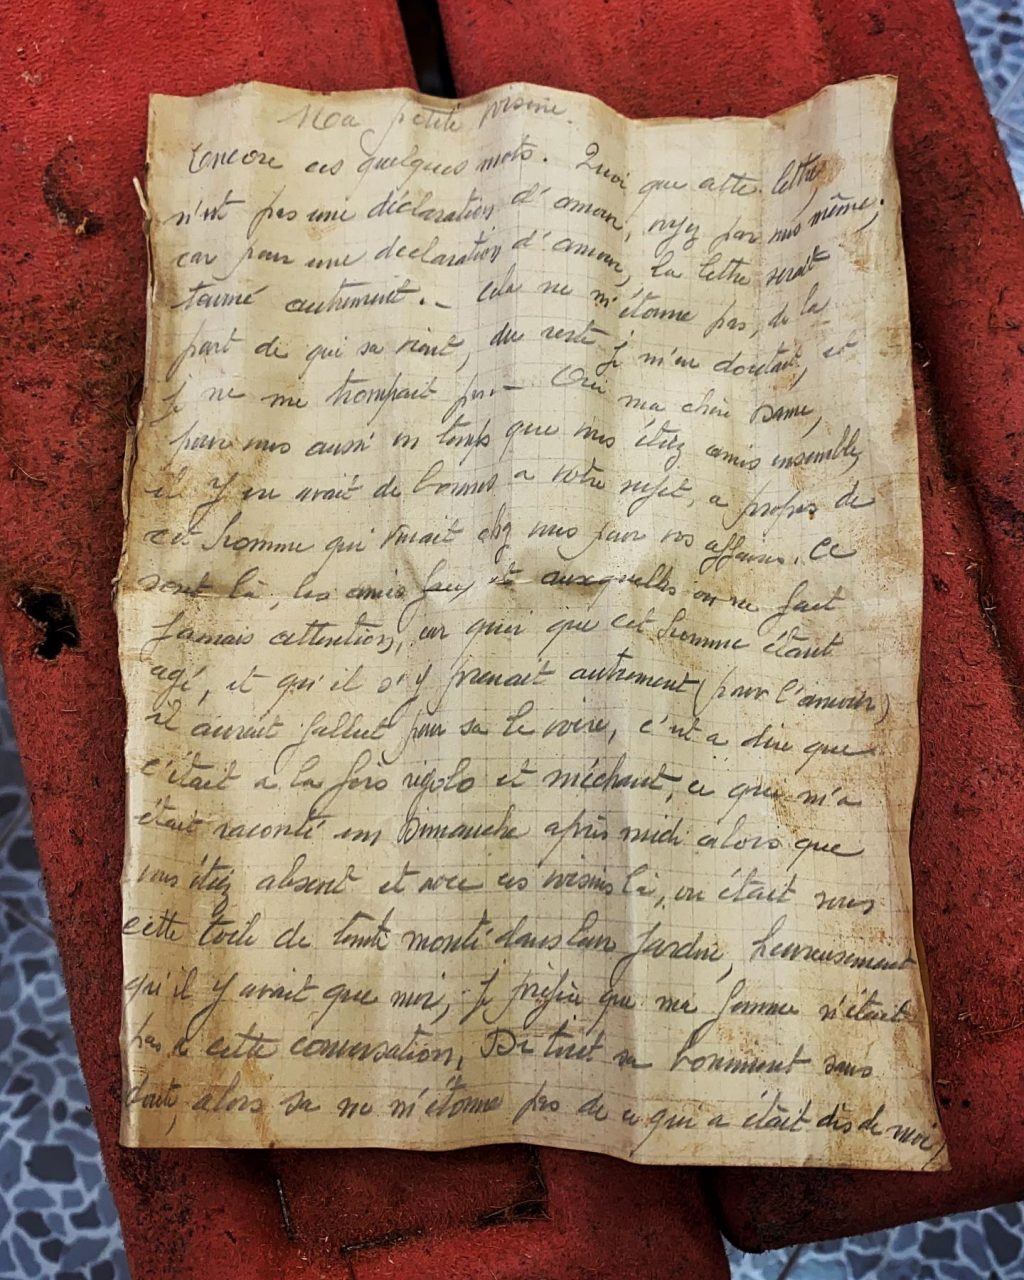 Ma petite voisine.
Encore ces quelques mots. Quoi que cette lettre
n'est pas une déclaration d'amour, voyez par vous même,
car pour une déclaration d'amour, la lettre serait
tourné autrement. _ Cela ne m'étonne pas, de la
part de qui sa vient, du reste je m'en doutait, et
je ne me trompait pas _ Oui ma chère Dame,
pour vous aussi en temps que vous étiez amis ensemble,
il y en avait de bonnes a votre sujet, a propos de
cet homme qui venait chez vous pour vos affaires. Ce
sont là, les amis faux et auxquelles on ne fait
jamais attention, car quoi que cet homme étant
agé, et qu'il s'y prenait autrement (pour l'amour)
il aurait fallut pour sa le voire, c'est a dire que
c'était a la fois rigolo et méchant, ce que m'a
était raconté un Dimanche après midi alors que
vous étiez absent et avec ces voisins là, on était sous
cette toile de tente monté dans leur jardin, heureusement
qu'il y avait que moi, je préfère que ma femme n'était
pas a cette conversation, sans
doute, alors sa ne m'étonne pas de ce qui a était dis de moi,